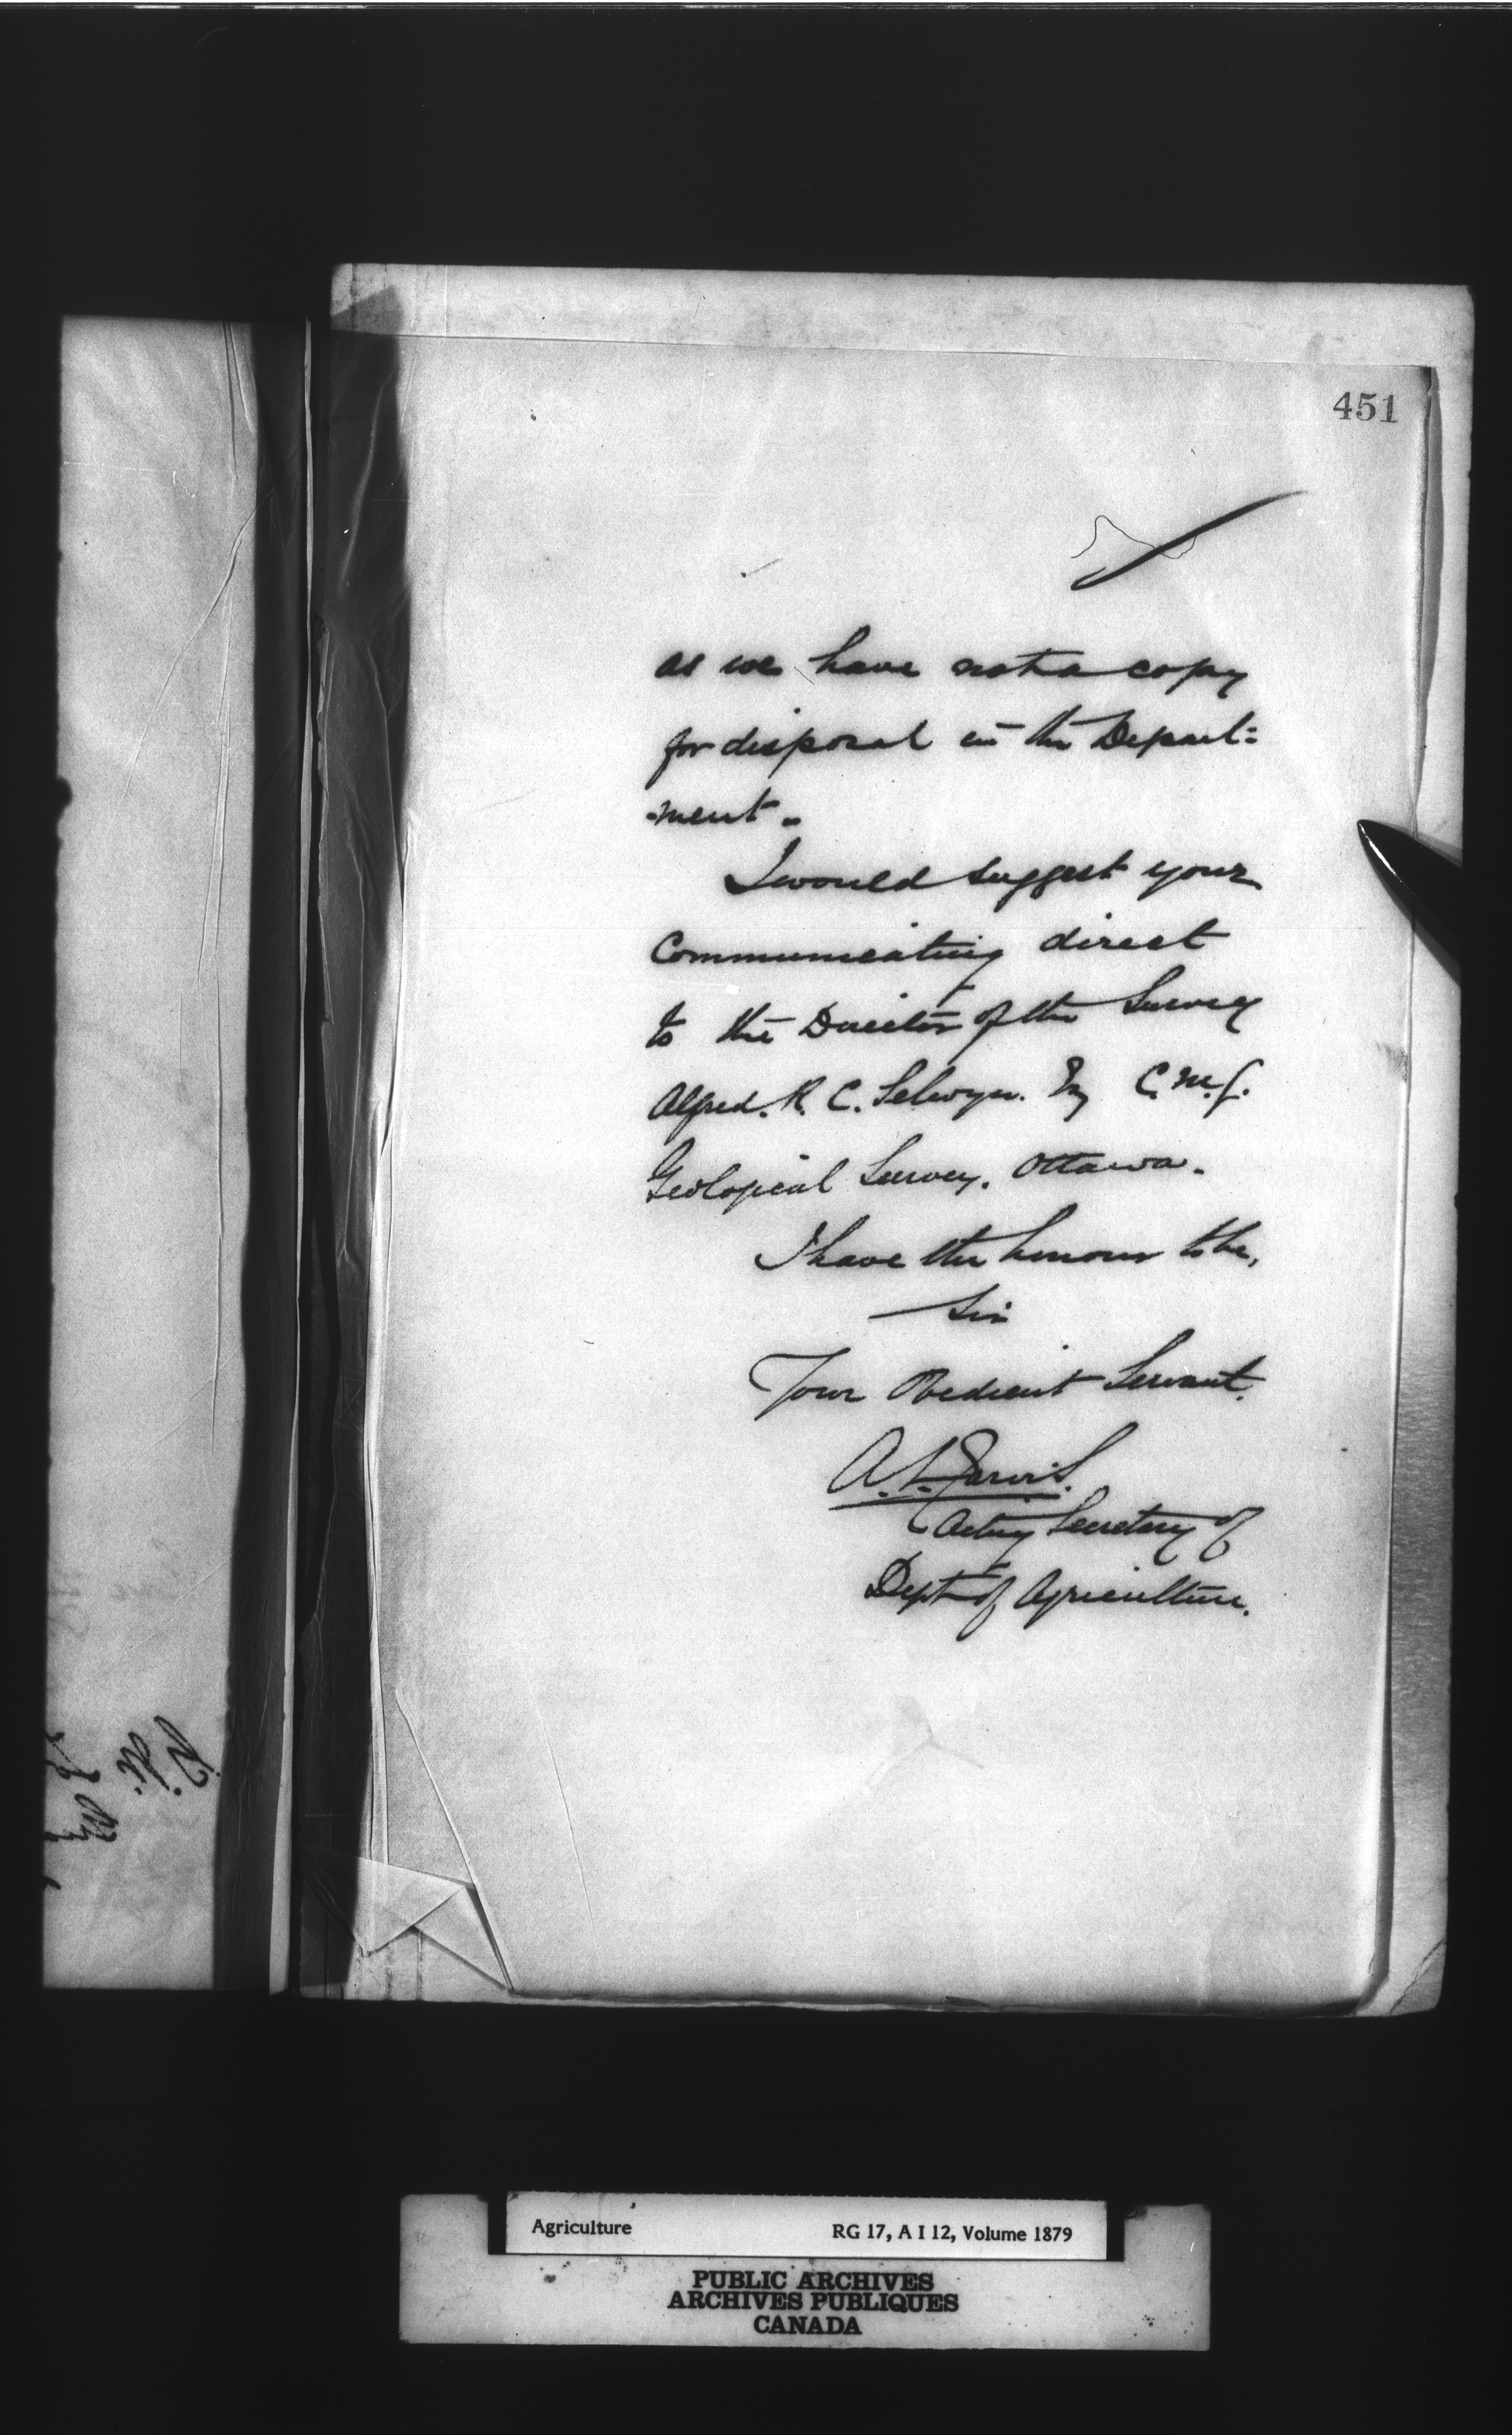 451
as we have not a copy
for disposal in the Depart=
-ment.
I would suggest your
Communicating direct
to the Director of the Survey
Alfred. R. C. Selwyn. Esq C.M.G.
Geological Survey. Ottawa.
I have the honour to be,
Sir
Your Obedient Servant.
A.L. Jarvis.
Acting Secretary of
Dept of Agriculture.
Agriculture RG 17, A I 12, Volume 1879
PUBLIC ARCHIVES
ARCHIVES PUBLIQUES
CANADA